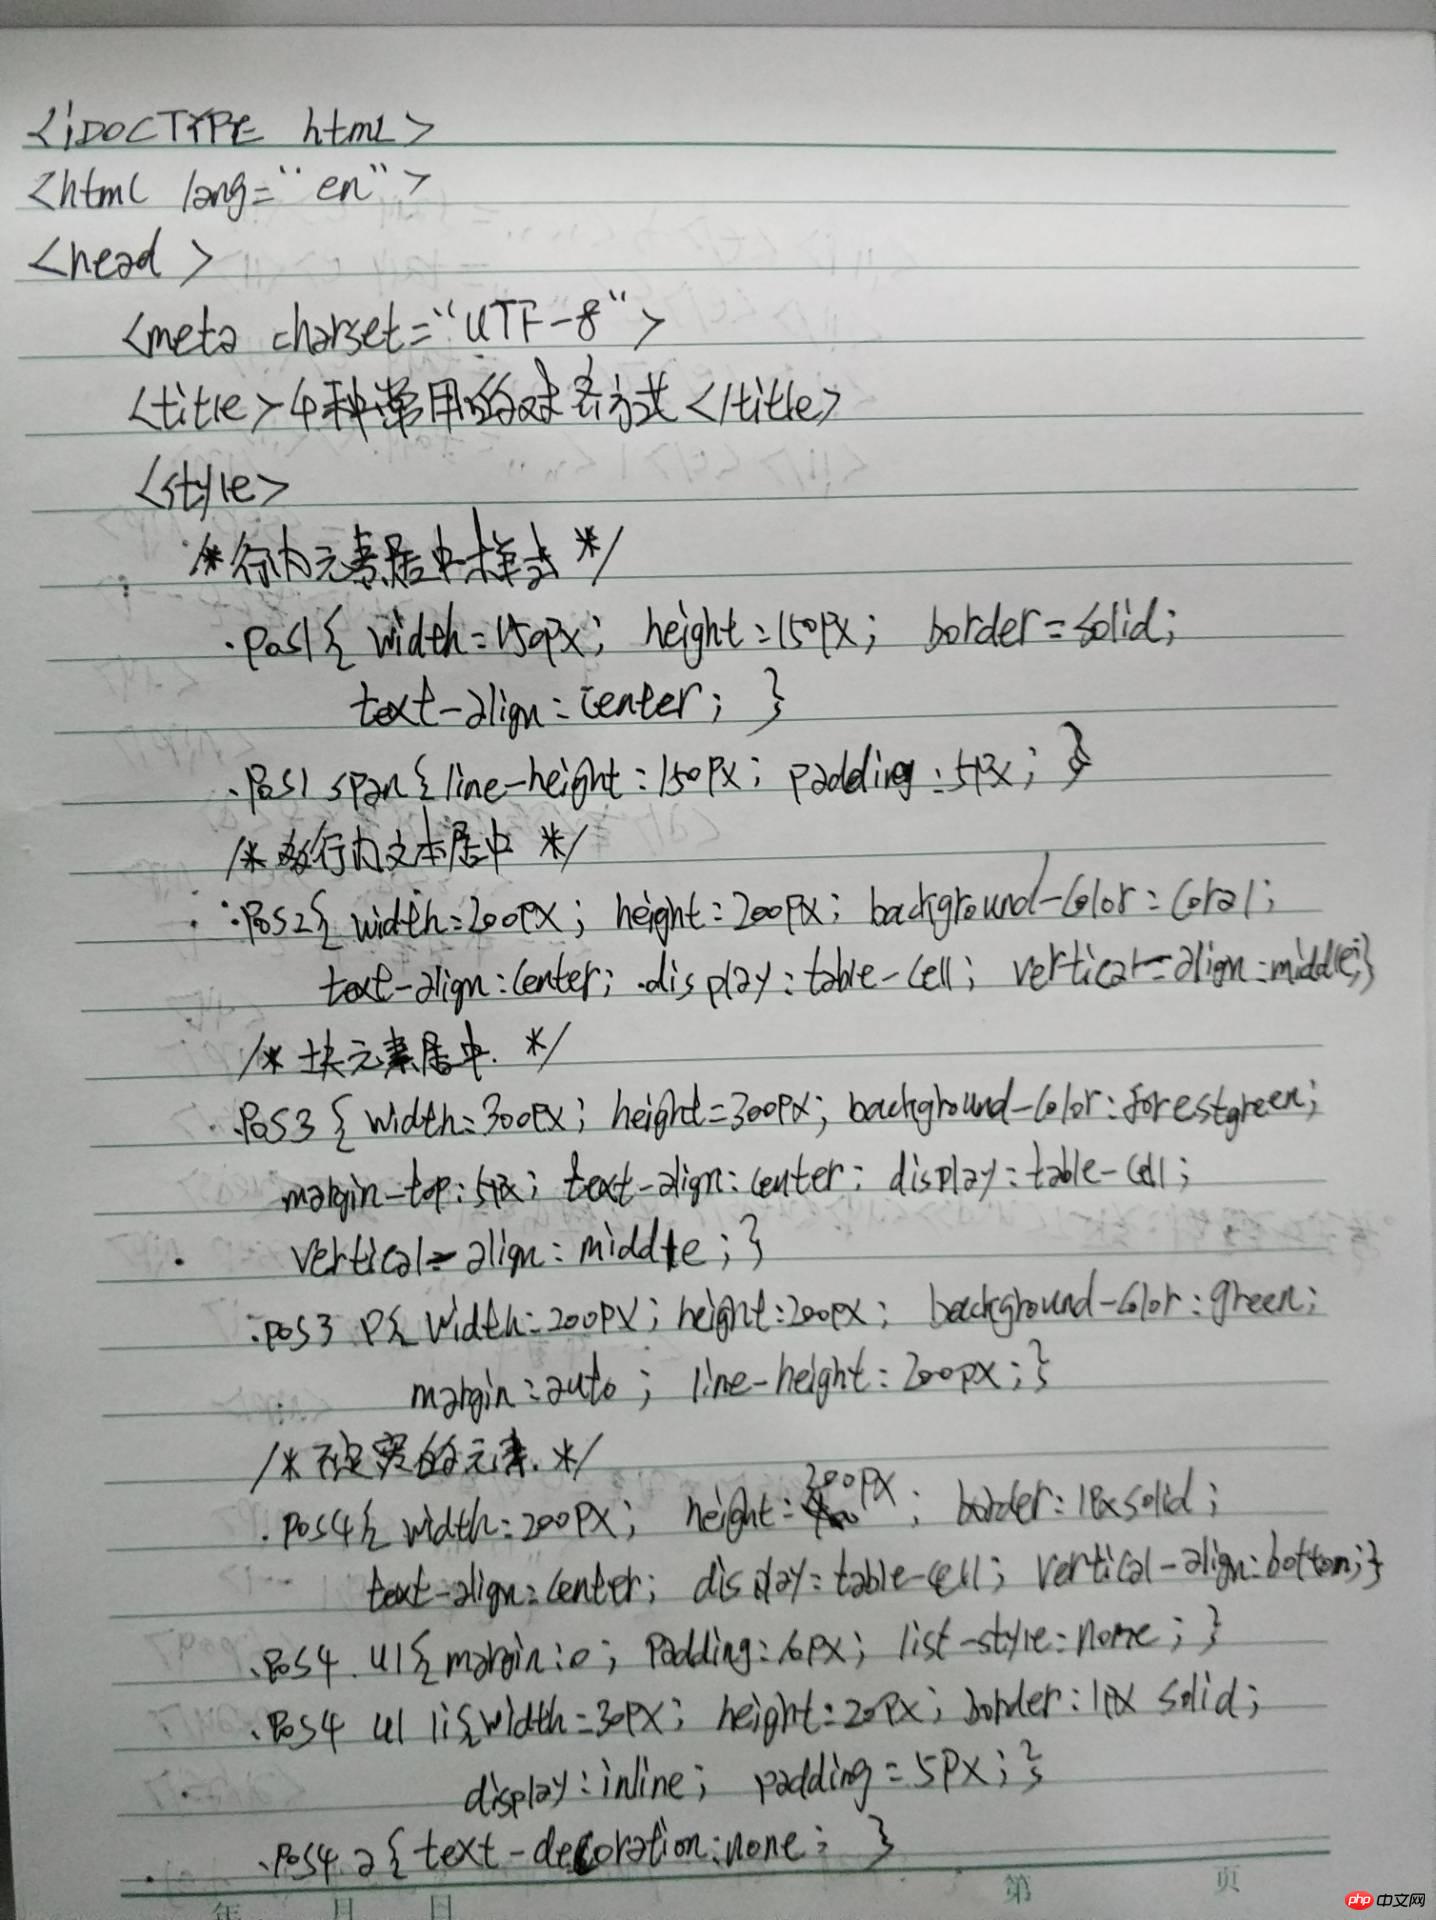 <!DOCTYPE html>
<html lang="en">
<head>
<meta charset="UTF-8">
<title>4种常用的对齐方式</title>
<style>
/*行内元素居中样式 */
.pos1{ width=150px; height=150px; border=solid;
text-align:center; }
.pos1 span{line-height:150px; padding:5px; }
/* 多行内文本居中 */
.pos2{ width=200px; height=200px; background-color:coral;
text-align:center; display:table-cell; vertical-align:middle;}
/* 块元素居中. */
.pos3 { width:300px; height=300px; background-color:forestgreen;
margin-top:5px; text-align:center; display:table-cell;
vertical-align:middle;}
.pos3 p{ width:200px; height:200px; background-color:green;
margin:auto; line-height:200px;}
/* 不定宽的元素. */
.pos4{ width=200px; height:200px; border:1px solid;
text-align:center; display:table-cell; vertical-align:bottom;}
.pos4 ul{margin:0; padding: 6px; list-style:none;}
.pos4 ul li{width=30px; height:20px; border:1px solid;
display:inline; padding=5px;}
.pos4 a{text-decoration:none; }
年 月 日 第 页
php中文网